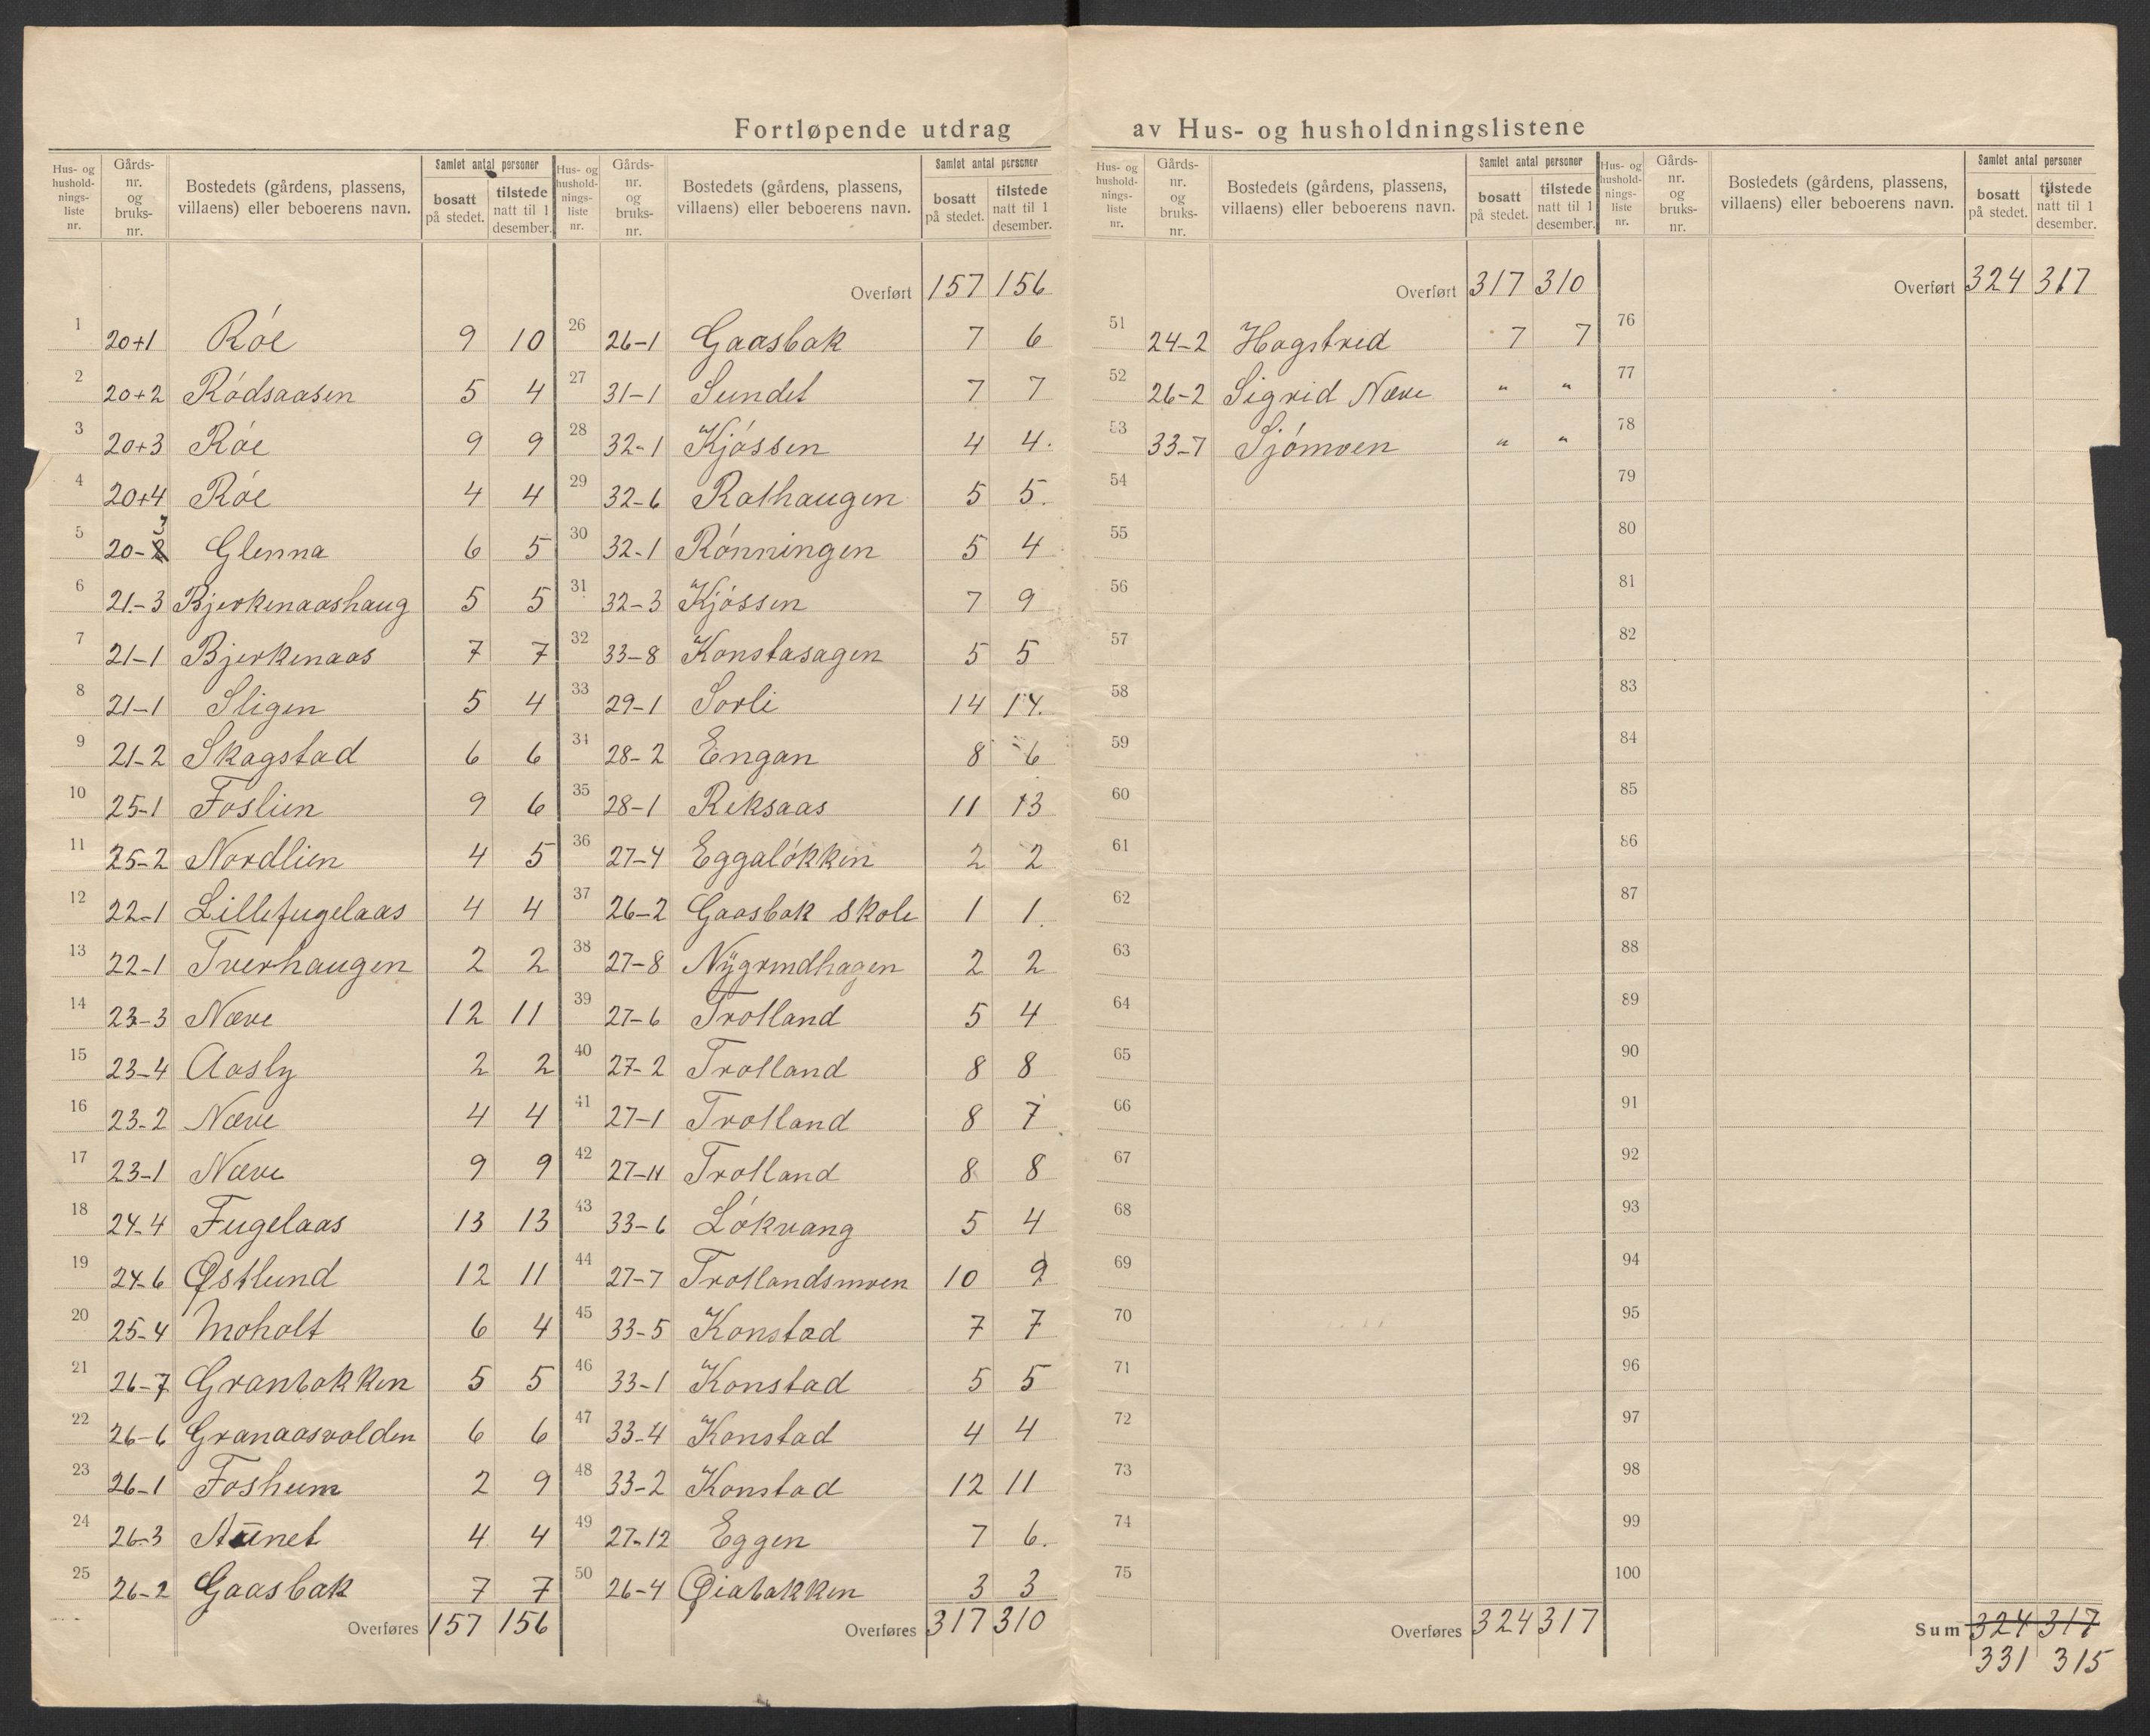 Fortløpende utdrag av Hus- og husholdningslistene
Hus- og hushold-nings-liste nr. | Gårds-nr. og bruks-nr. | Bostedets (gårdens, plassens, villaens) eller beboerens navn. | Samlet antal personer | bosatt på stedet. | tilstede natt til 1 desember.
1 20+1 Róe 9 10
2 20+2 Ródsaasen 5 4
3 20+3 Róe 9 9
4 20+4 Róe 4 4
5 20-3 Glenna 6 5
6 21-3 Bjerkenaashaug 5 5
7 21-1 Bjerkenaas 7 7
8 21-1 Sligen 5 4
9 21-2 Skogstad 6 6
10 25-1 Foslien 9 6
11 25-2 Nordlien 4 5
12 22-1 Lillefugelaas 4 4
13 22-1 Tverhaugen 2 2
14 23-3 Næve 12 11
15 23-4 Aasly 2 2
16 23-2 Næve 4 4
17 23-1 Næve 9 9
18 24-4 Fugelaas 13 13
19 24-6 Østlund 12 11
20 25-4 Moholt 6 4
21 26-7 Granbakken 5 5
22 26-6 Granaasvolden 6 6
23 26-1 Fosheim 2 9
24 26-3 Aunet 4 4
25 26-2 Gaasbak 7 7
Overføres 157 156
Hus- og hushold-nings-liste nr. | Gårds-nr. og bruks-nr. | Bostedets (gårdens, plassens, villaens) eller beboerens navn. | Samlet antal personer | bosatt på stedet. | tilstede natt til 1 desember.
Overført 157 156
26 26-1 Gaasbak 7 6
27 31-1 Sundet 7 7
28 32-1 Kjóssen 4 4.
29 32-6 Rathaugen 5 5.
30 32-1 Rónningen 5 4
31 32-3 Kjóssen 7 9
32 33-8 Konstasagen 5 5
33 29-1 Sorli 14 14.
34 28-2 Engan 8 6
35 28-1 Reksaas 11 13
36 27-4 Eggalókken 2 2
37 26-2 Gaasbak Skole 1 1.
38 27-8 Nÿgrindhagen 2 2
39 27-6 Trotland 5 4
40 27-2 Trotland 8 8
41 27-1 Trotland 8 7
42 27-11 Trotland 8 8
43 33-6 Lókvang 5 4
44 27-7 Trotlandsmoen 10 9
45 33-5 Konstad 7 7
46 33-1 Konstad 5 5
47 33-4 Konstad 4 4
48 33-2 Konstad 12 11
49 27-12 Eggen 7 6.
50 26-4 Øiabakken 3 3
Overføres 317 310
Hus- og hushold-nings-liste nr. | Gårds-nr. og bruks-nr. | Bostedets (gårdens, plassens, villaens) eller beboerens navn. | Samlet antal personer | bosatt på stedet. | tilstede natt til 1 desember.
Overført 317 310
51 24-2 Hogstrid 7 7
52 26-2 Sigrid Næve " "
53 33-7 Sjómoen " "
54
55
56
57
58
59
60
61
62
63
64
65
66
67
68
69
70
71
72
73
74
75
Overføres 324 317
Hus- og hushold-nings-liste nr. | Gårds-nr. og bruks-nr. | Bostedets (gårdens, plassens, villaens) eller beboerens navn. | Samlet antal personer | bosatt på stedet. | tilstede natt til 1 desember.
Overført 324 317
76
77
78
79
80
81
82
83
84
85
86
87
88
89
90
91
92
93
94
95
96
97
98
99
100
Sum 324 317
331 315